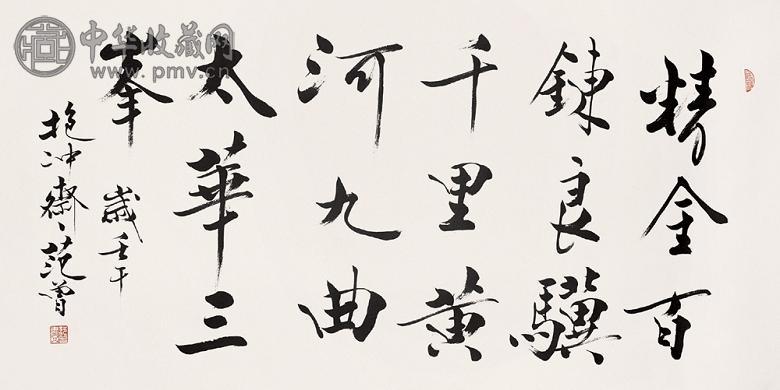 精金百
鍊良驥
千里黄
河九曲
太華三
峯 歲壬午
抱冲齋、范曾
中华收藏网
www.pmv.cn